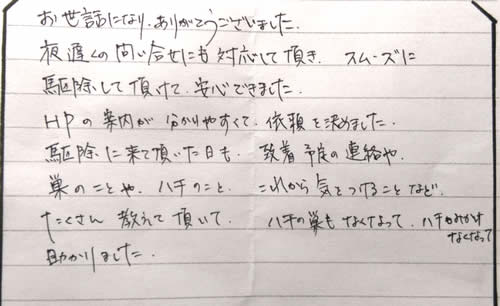 お世話になり、ありがとうございました。
夜遅くの問い合せにも対応して頂き、スムーズに
駆除して頂けて、安心できました。
HPの案内が分かりやすくて、依頼を決めました。
駆除に来て頂いた日も、到着予定の連絡や、
巣のことや、ハチのこと、これから気をつけることなど、
たくさん教えて頂いて、ハチの巣もなくなって、ハチもみかけ
なくなって
助かりました。